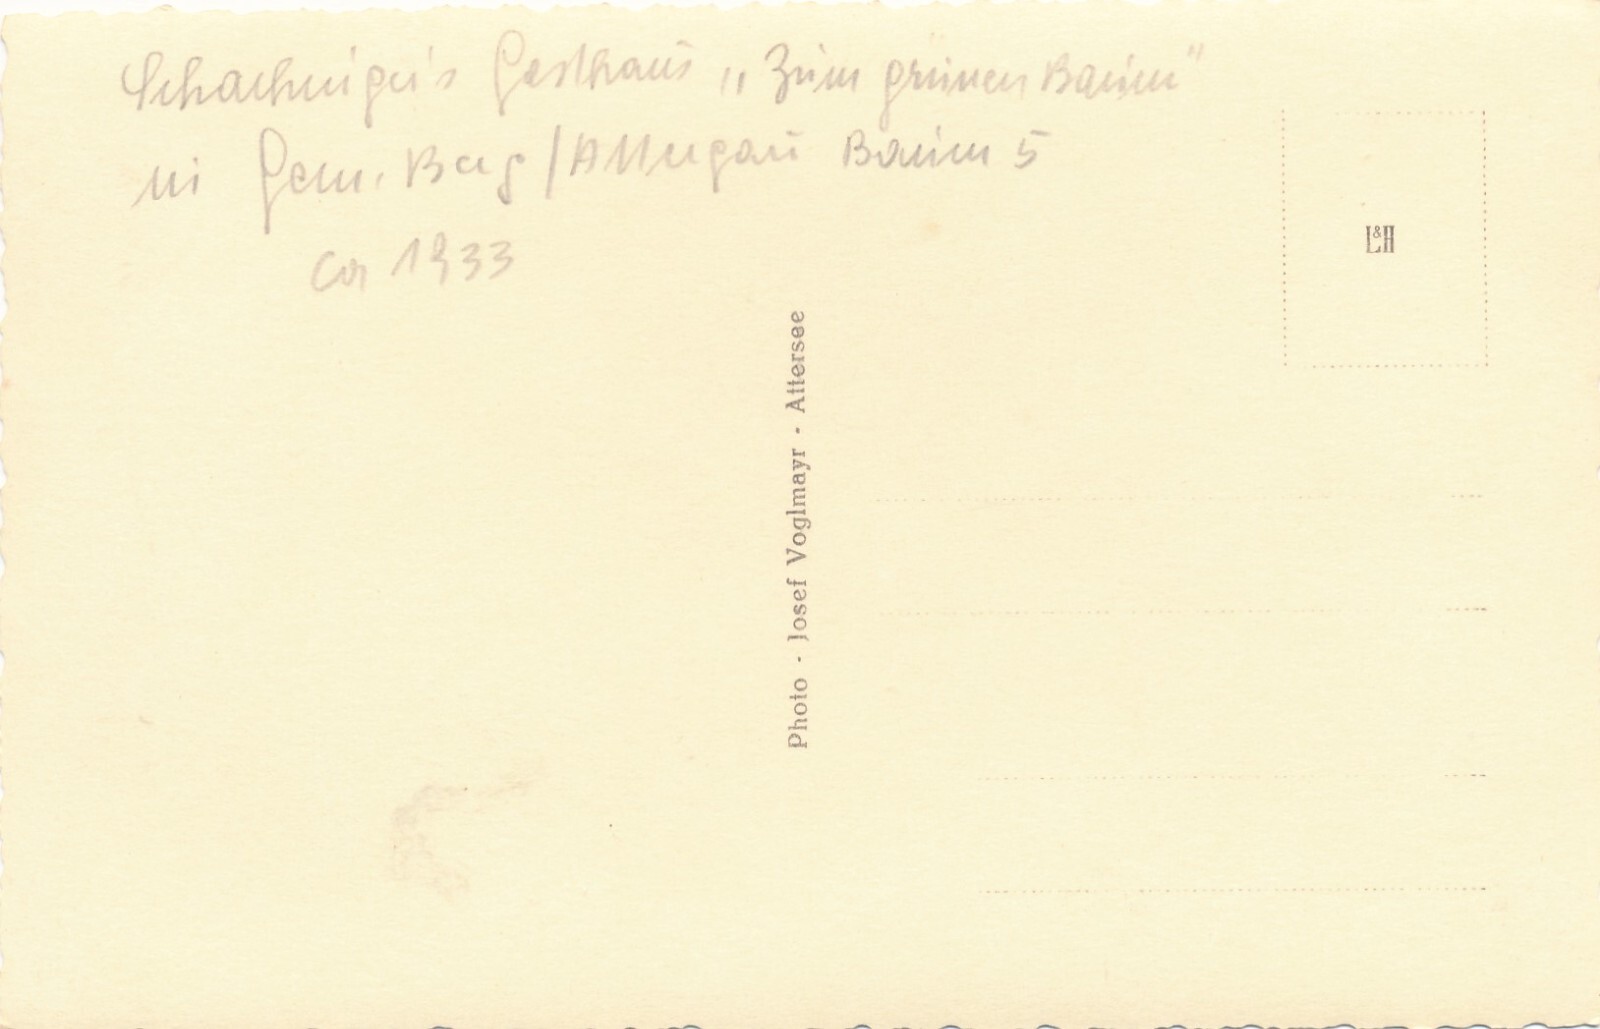 Schachinger's Gasthaus „Zum grünen Baum"
in Gem. Berg/Attergau Baum 5
ca 1933
Photo - Josef Voglmayr - Attersee
L&H